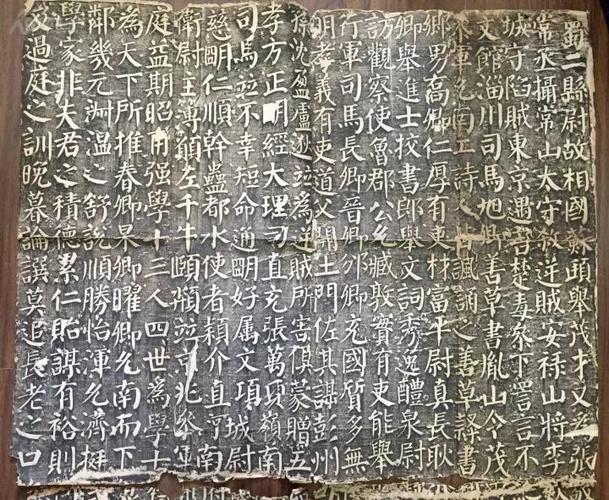 蜀二縣尉故相國蘇頲舉茂才又為張敬
常丞攝常山太守殺逆賊安祿山將李
城守陷賊東京遇害楚毒參下詈言不
文館淄川司馬旭卿善草書胤山令茂
參軍允南工詩人皆諷誦之善草隸書
鄉男喬卿仁厚有吏材富平尉真長耿
卿舉進士校書郎舉文詞秀逸醴泉尉
訪觀察使魯郡公允臧敦實有吏能舉
行軍司馬長卿晉卿邠卿充國質多無
明孝義有吏道父開土門佐其謀彭州
孫沈盈盧逖並為逆賊所害俱蒙贈五
孝方正明經大理司直充張萬頃嶺南
司馬並不幸短命通明好屬文項城尉
慈明仁順幹蠱都水使者頰介直河南
衛尉主簿頵左千牛頤顥並京兆參軍
庭益期昭甫強學十三人四世為學士
為天下所推春卿杲卿曜卿允南而下
鄰幾元淵溫之舒說順勝怡渾允濟挺
學家非夫君之積德累仁貽謀有裕則
及過庭之訓晚暮論譔莫追長老之口